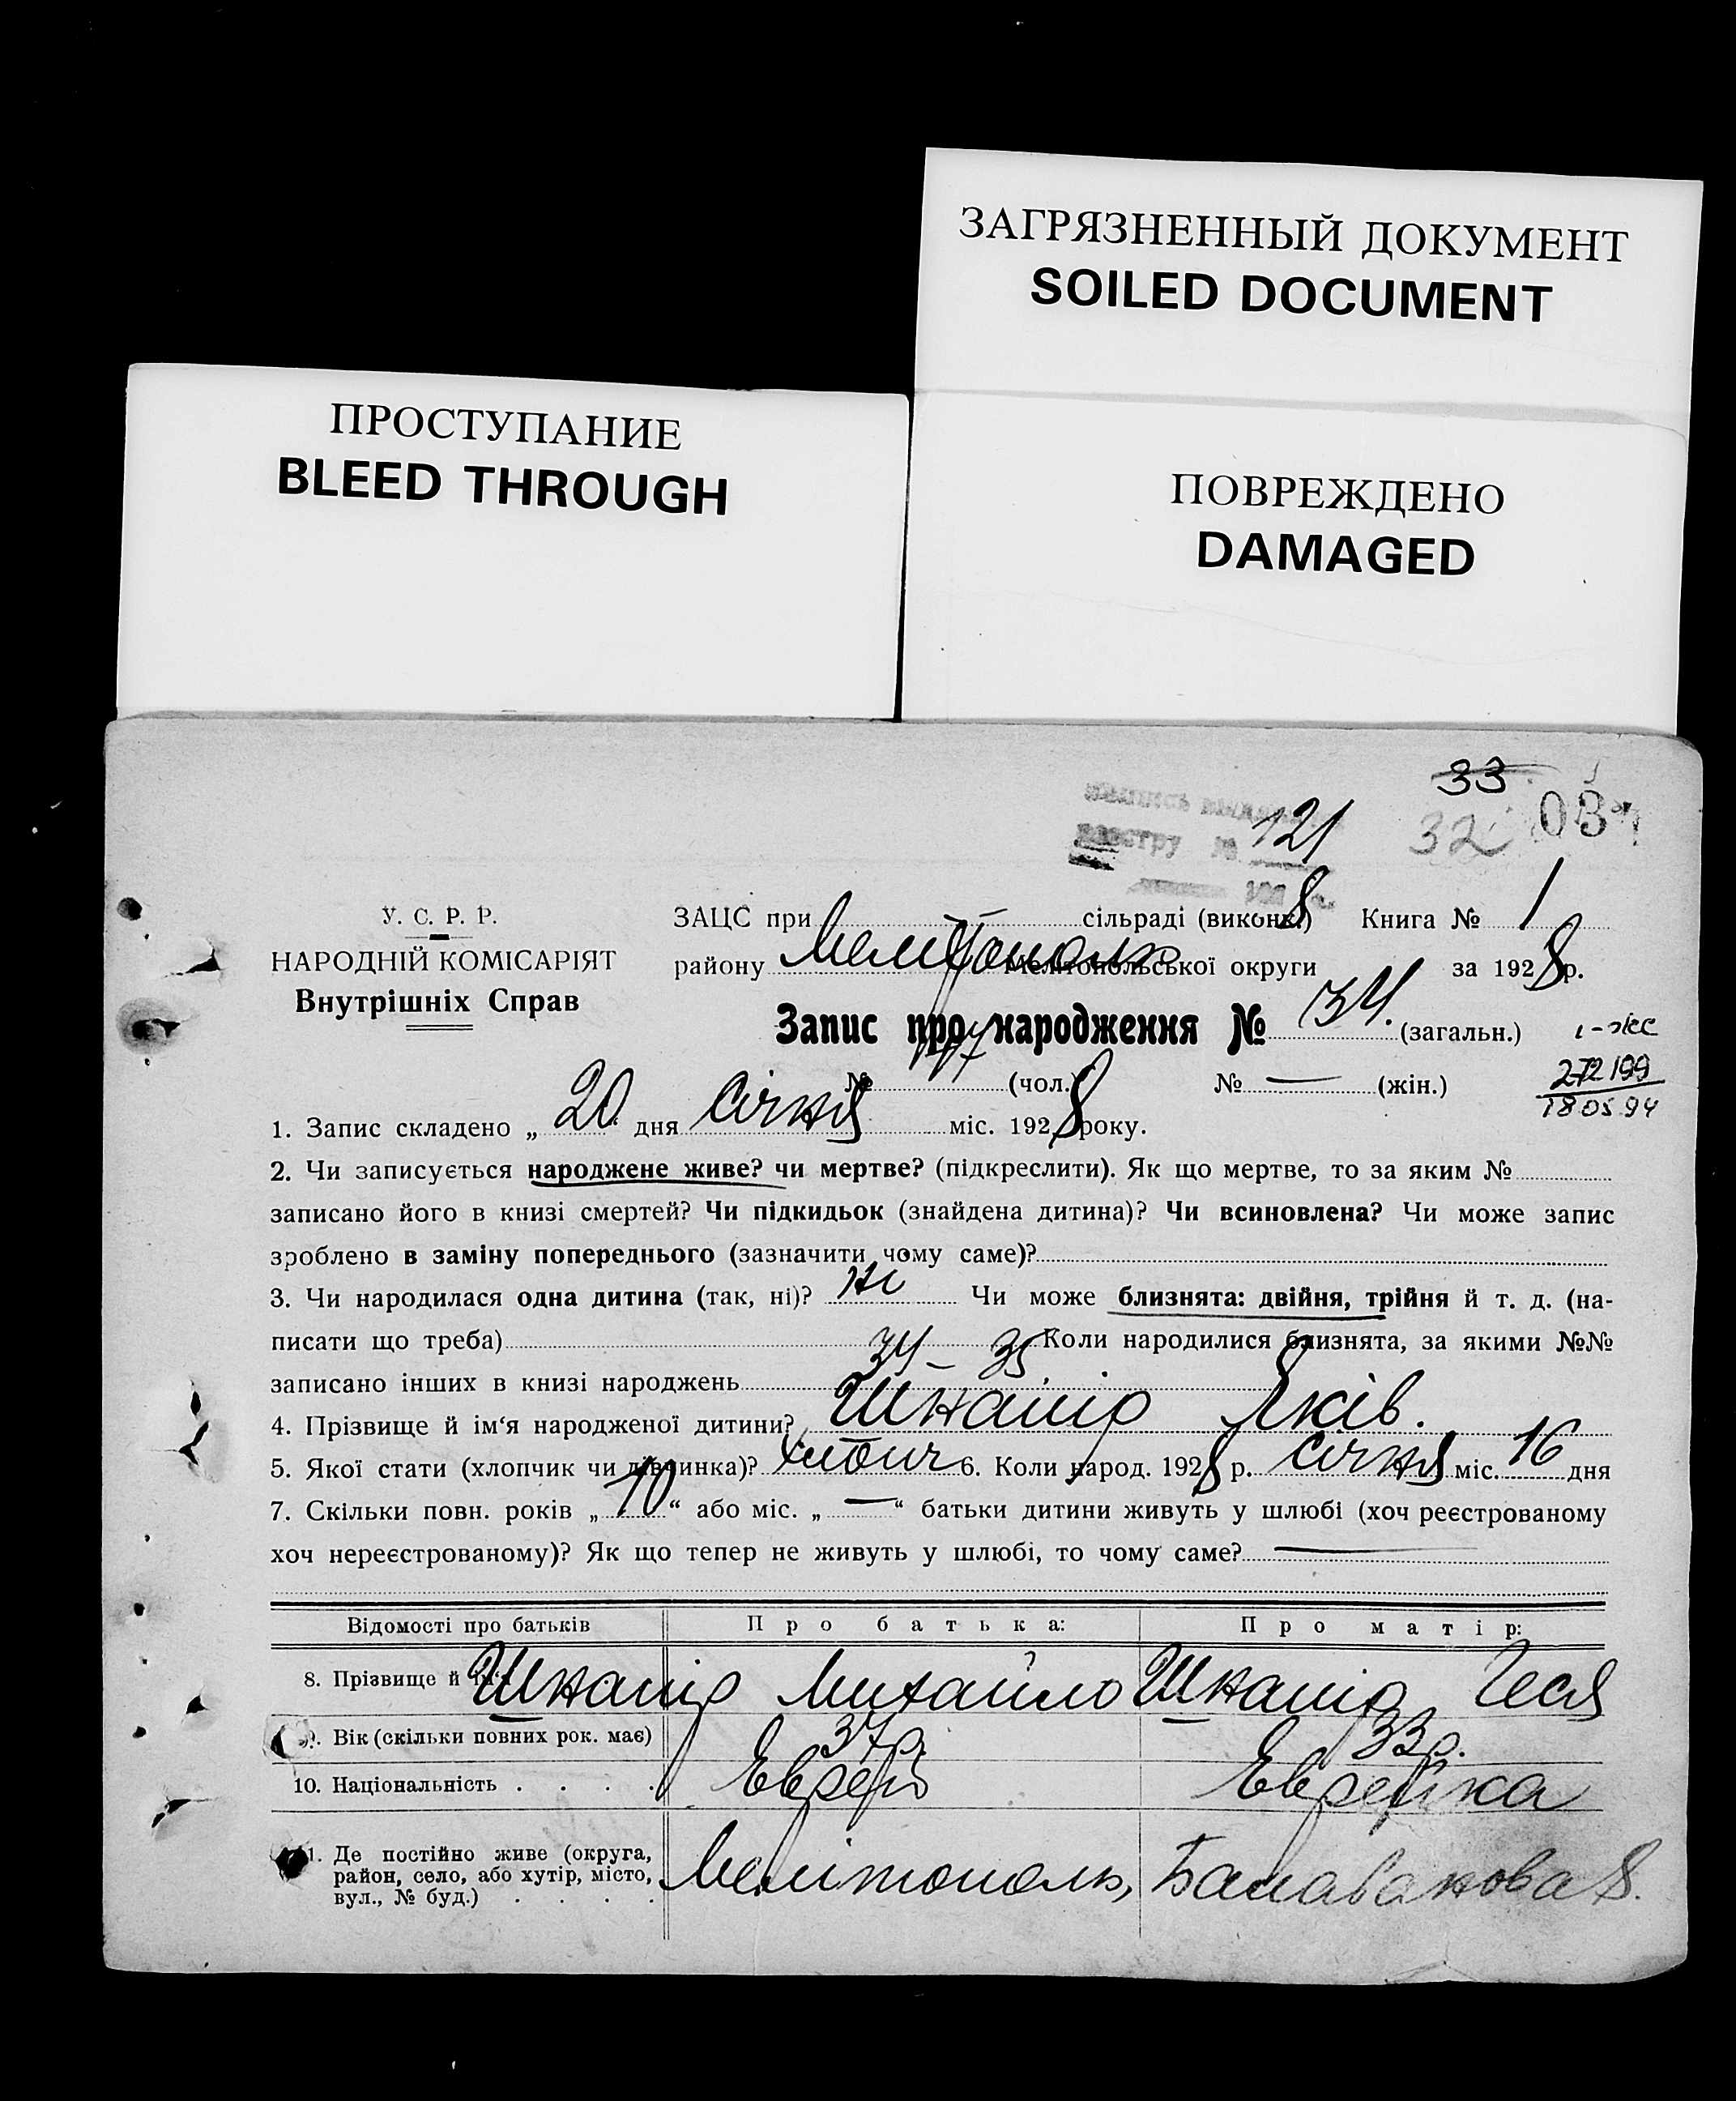 ЗАГРЯЗНЕННЫЙ ДОКУМЕНТ
SOILED DOCUMENT
ПРОСТУПАНИЕ
BLEED THROUGH
ПОВРЕЖДЕНО
DAMAGED
33
121
32
03
У. С. Р. Р.
НАРОДНІЙ КОМІСАРІЯТ
Внутрішніх Справ
ЗАЦС при — сільраді (виконк.) Книга № 1
району Мелітополь Мелітопольської округи за 1928 р.
Запис про народження № 34. (загальн.)
№ (чол.) № — (жін.)
272199
18 05 94
1. Запис складено „ 20 " дня січня міс. 1928 року.
2. Чи записується народжене живе? чи мертве? (підкреслити). Як що мертве, то за яким №
записано його в книзі смертей? Чи підкидьок (знайдена дитина)? Чи всиновлена? Чи може запис
зроблено в заміну попереднього (зазначити чому саме)?
3. Чи народилася одна дитина (так, ні)? ні Чи може близнята: двійня, трійня й т. д. (на-
писати що треба) Коли народилися близнята, за якими №№
записано інших в книзі народжень 34 – 35
4. Прізвище й ім'я народженої дитини? Шкапір Яків.
5. Якої стати (хлопчик чи дівчинка)? хлопч 6. Коли народ. 1928 р. січня міс. 16 дня
7. Скільки повн. років „ 10 “ або міс. „ — “ батьки дитини живуть у шлюбі (хоч реєстрованому
хоч нереєстрованому)? Як що тепер не живуть у шлюбі, то чому саме? —
Відомості про батьків Про батька: Про матір:
8. Прізвище й ім'я Шкапір Михайло Шкапір Геся
9. Вік (скільки повних рок. має) 37 р. 33 р.
10. Національність . . . . Еврей Еврейка
11. Де постійно живе (округа,
район, село, або хутір, місто,
вул., № буд.) . . . . Мелітополь, 8.